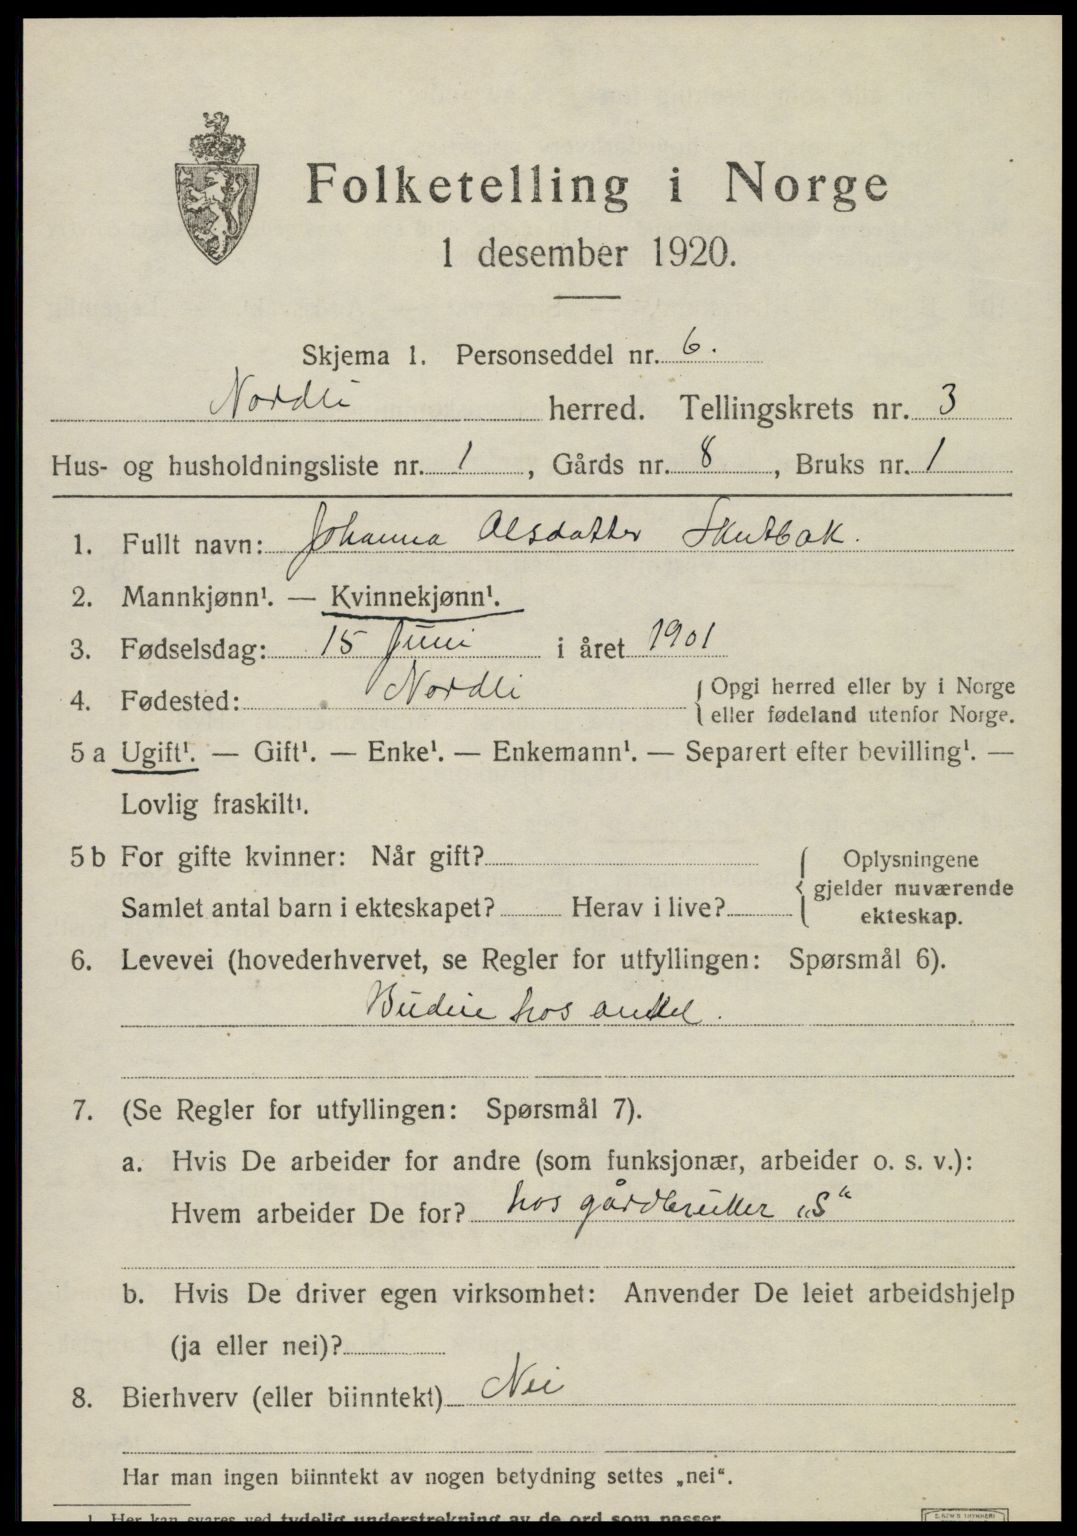 Folketelling i Norge
1 desember 1920.
Skjema 1. Personseddel nr. 6.
Nordli herred. Tellingskrets nr. 3
Hus- og husholdningsliste nr. 1, Gårds nr. 8, Bruks nr. 1
1. Fullt navn: Johanna Olsdatter Skutbak.
2. Mannkjønn¹. — Kvinnekjønn¹.
3. Fødselsdag: 15 Juni i året 1901
4. Fødested: Nordli {Opgi herred eller by i Norge
eller fødeland utenfor Norge.
5 a Ugift¹. — Gift¹. — Enke¹. — Enkemann¹. — Separert efter bevilling¹. —
Lovlig fraskilt¹.
5 b For gifte kvinner: Når gift? { Oplysningene
gjelder nuværende
Samlet antal barn i ekteskapet? Herav i live?
ekteskap.
6. Levevei (hovederhvervet, se Regler for utfyllingen: Spørsmål 6).
Budeie hos onkel.
7. (Se Regler for utfyllingen: Spørsmål 7).
a. Hvis De arbeider for andre (som funksjonær, arbeider o. s. v.):
Hvem arbeider De for? hos gårdbruker „S“
b. Hvis De driver egen virksomhet: Anvender De leiet arbeidshjelp
(ja eller nei)?
8. Bierhverv (eller biinntekt) Nei
Har man ingen biinntekt av nogen betydning settes „nei“.
1. Her kan svares ved tydelig understrekning av de ord som passer.